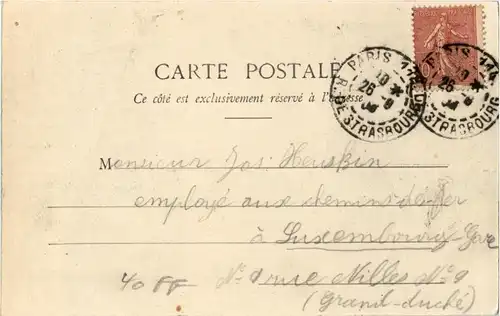 CARTE POSTALE
Ce côté est exclusivement réservé à l'adresse
PARIS 110
10
26
R. DE STRASBOURG
PARIS 110
10
26
R. DE STRASBOURG
Monsieur Jos. Heuskin
employé aux chemins de fer
à Luxembourg-Gare
40 PF N° 9 rue Nilles N° 9
(Grand-duché)